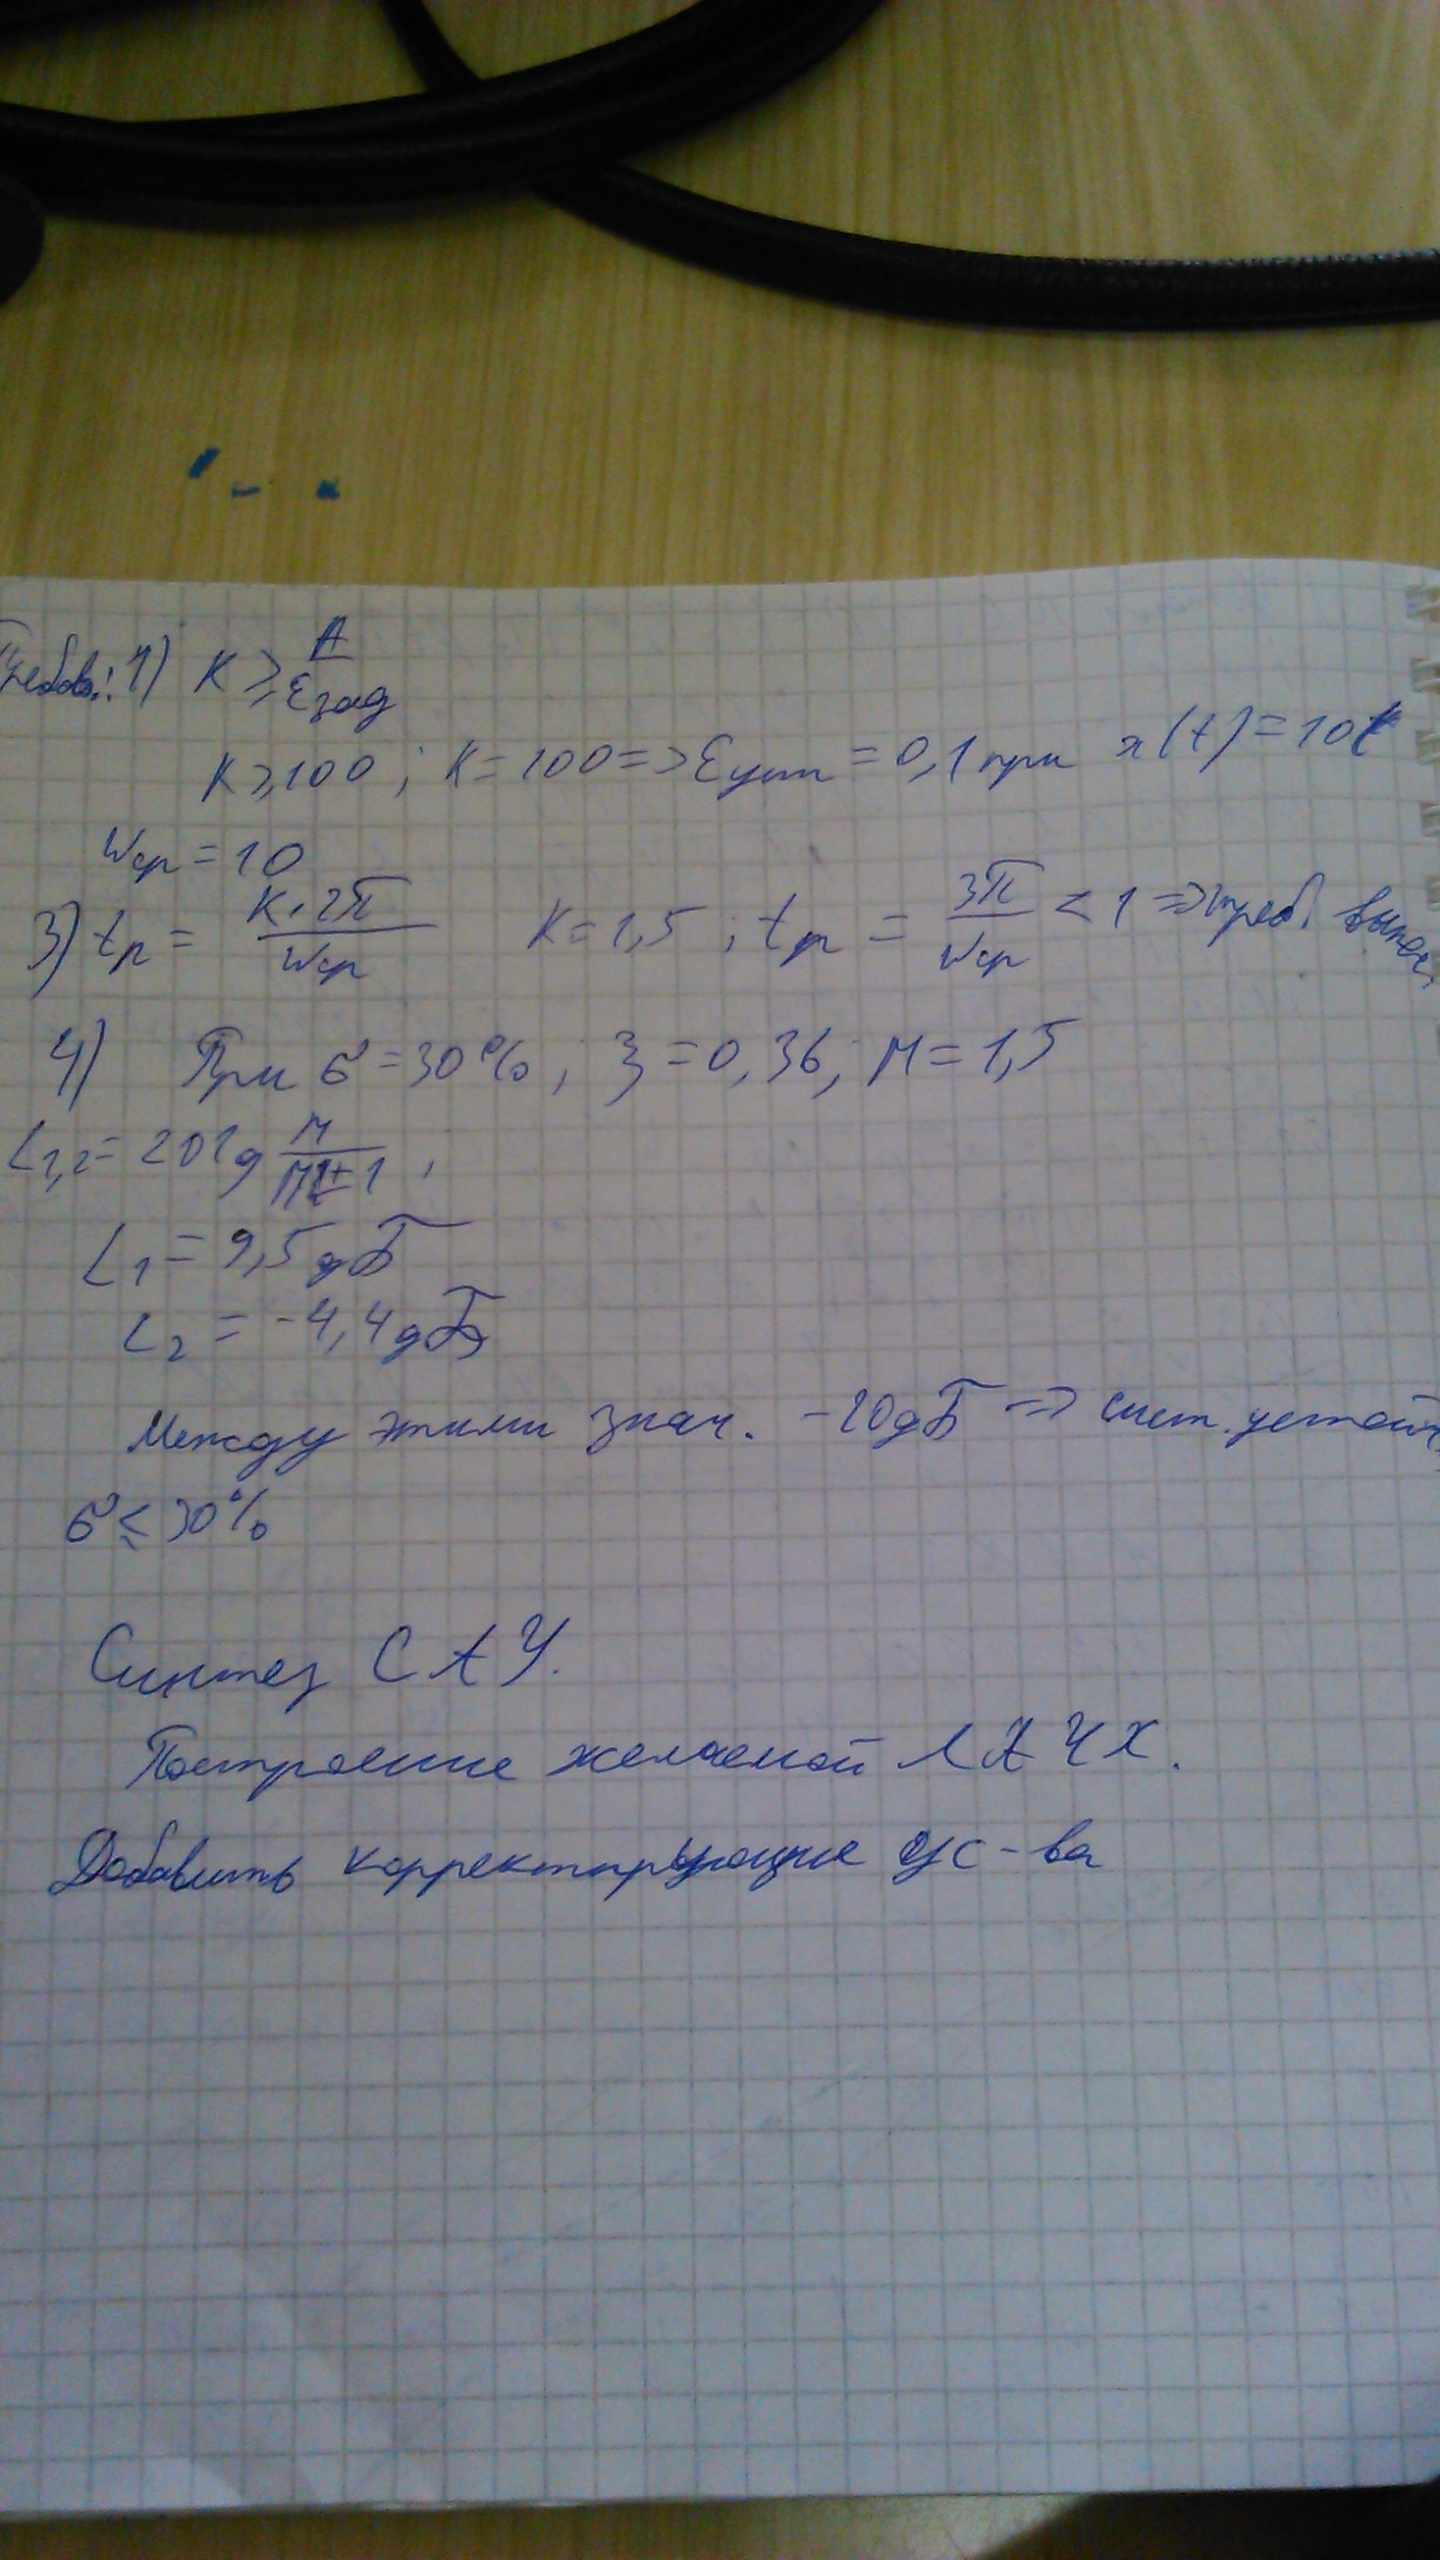 Требов.: 1) K ⩾ A/εзад
K ⩾ 100; K = 100 => εуст = 0,1 при x(t) = 10t
ωср = 10
3) tр = K·2π/ωср K = 1,5; tр = 3π/ωср < 1 => треб. выпол.
4) При σ = 30%; ξ = 0,36; M = 1,5
L1,2 = 20lg M/(M∓1);
L1 = 9,5 дБ
L2 = -4,4 дБ
Между этими знач. -20 дБ => сист. устойч,
σ ⩽ 30%
Синтез САУ.
Построение желаемой ЛАЧХ.
Добавить корректирующие ус-ва